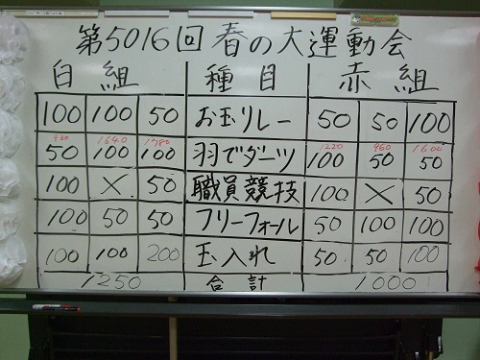 第5016回春の大運動会
白組 種目 赤組
100 100 50 お玉リレー 50 50 100
1640 1780 1220 960 1600
50 100 100 羽でダーツ 100 50 50
100 × 50 職員競技 100 × 50
100 50 50 フリーフォール 50 100 100
100 100 200 玉入れ 50 50 100
1250 合計 1000